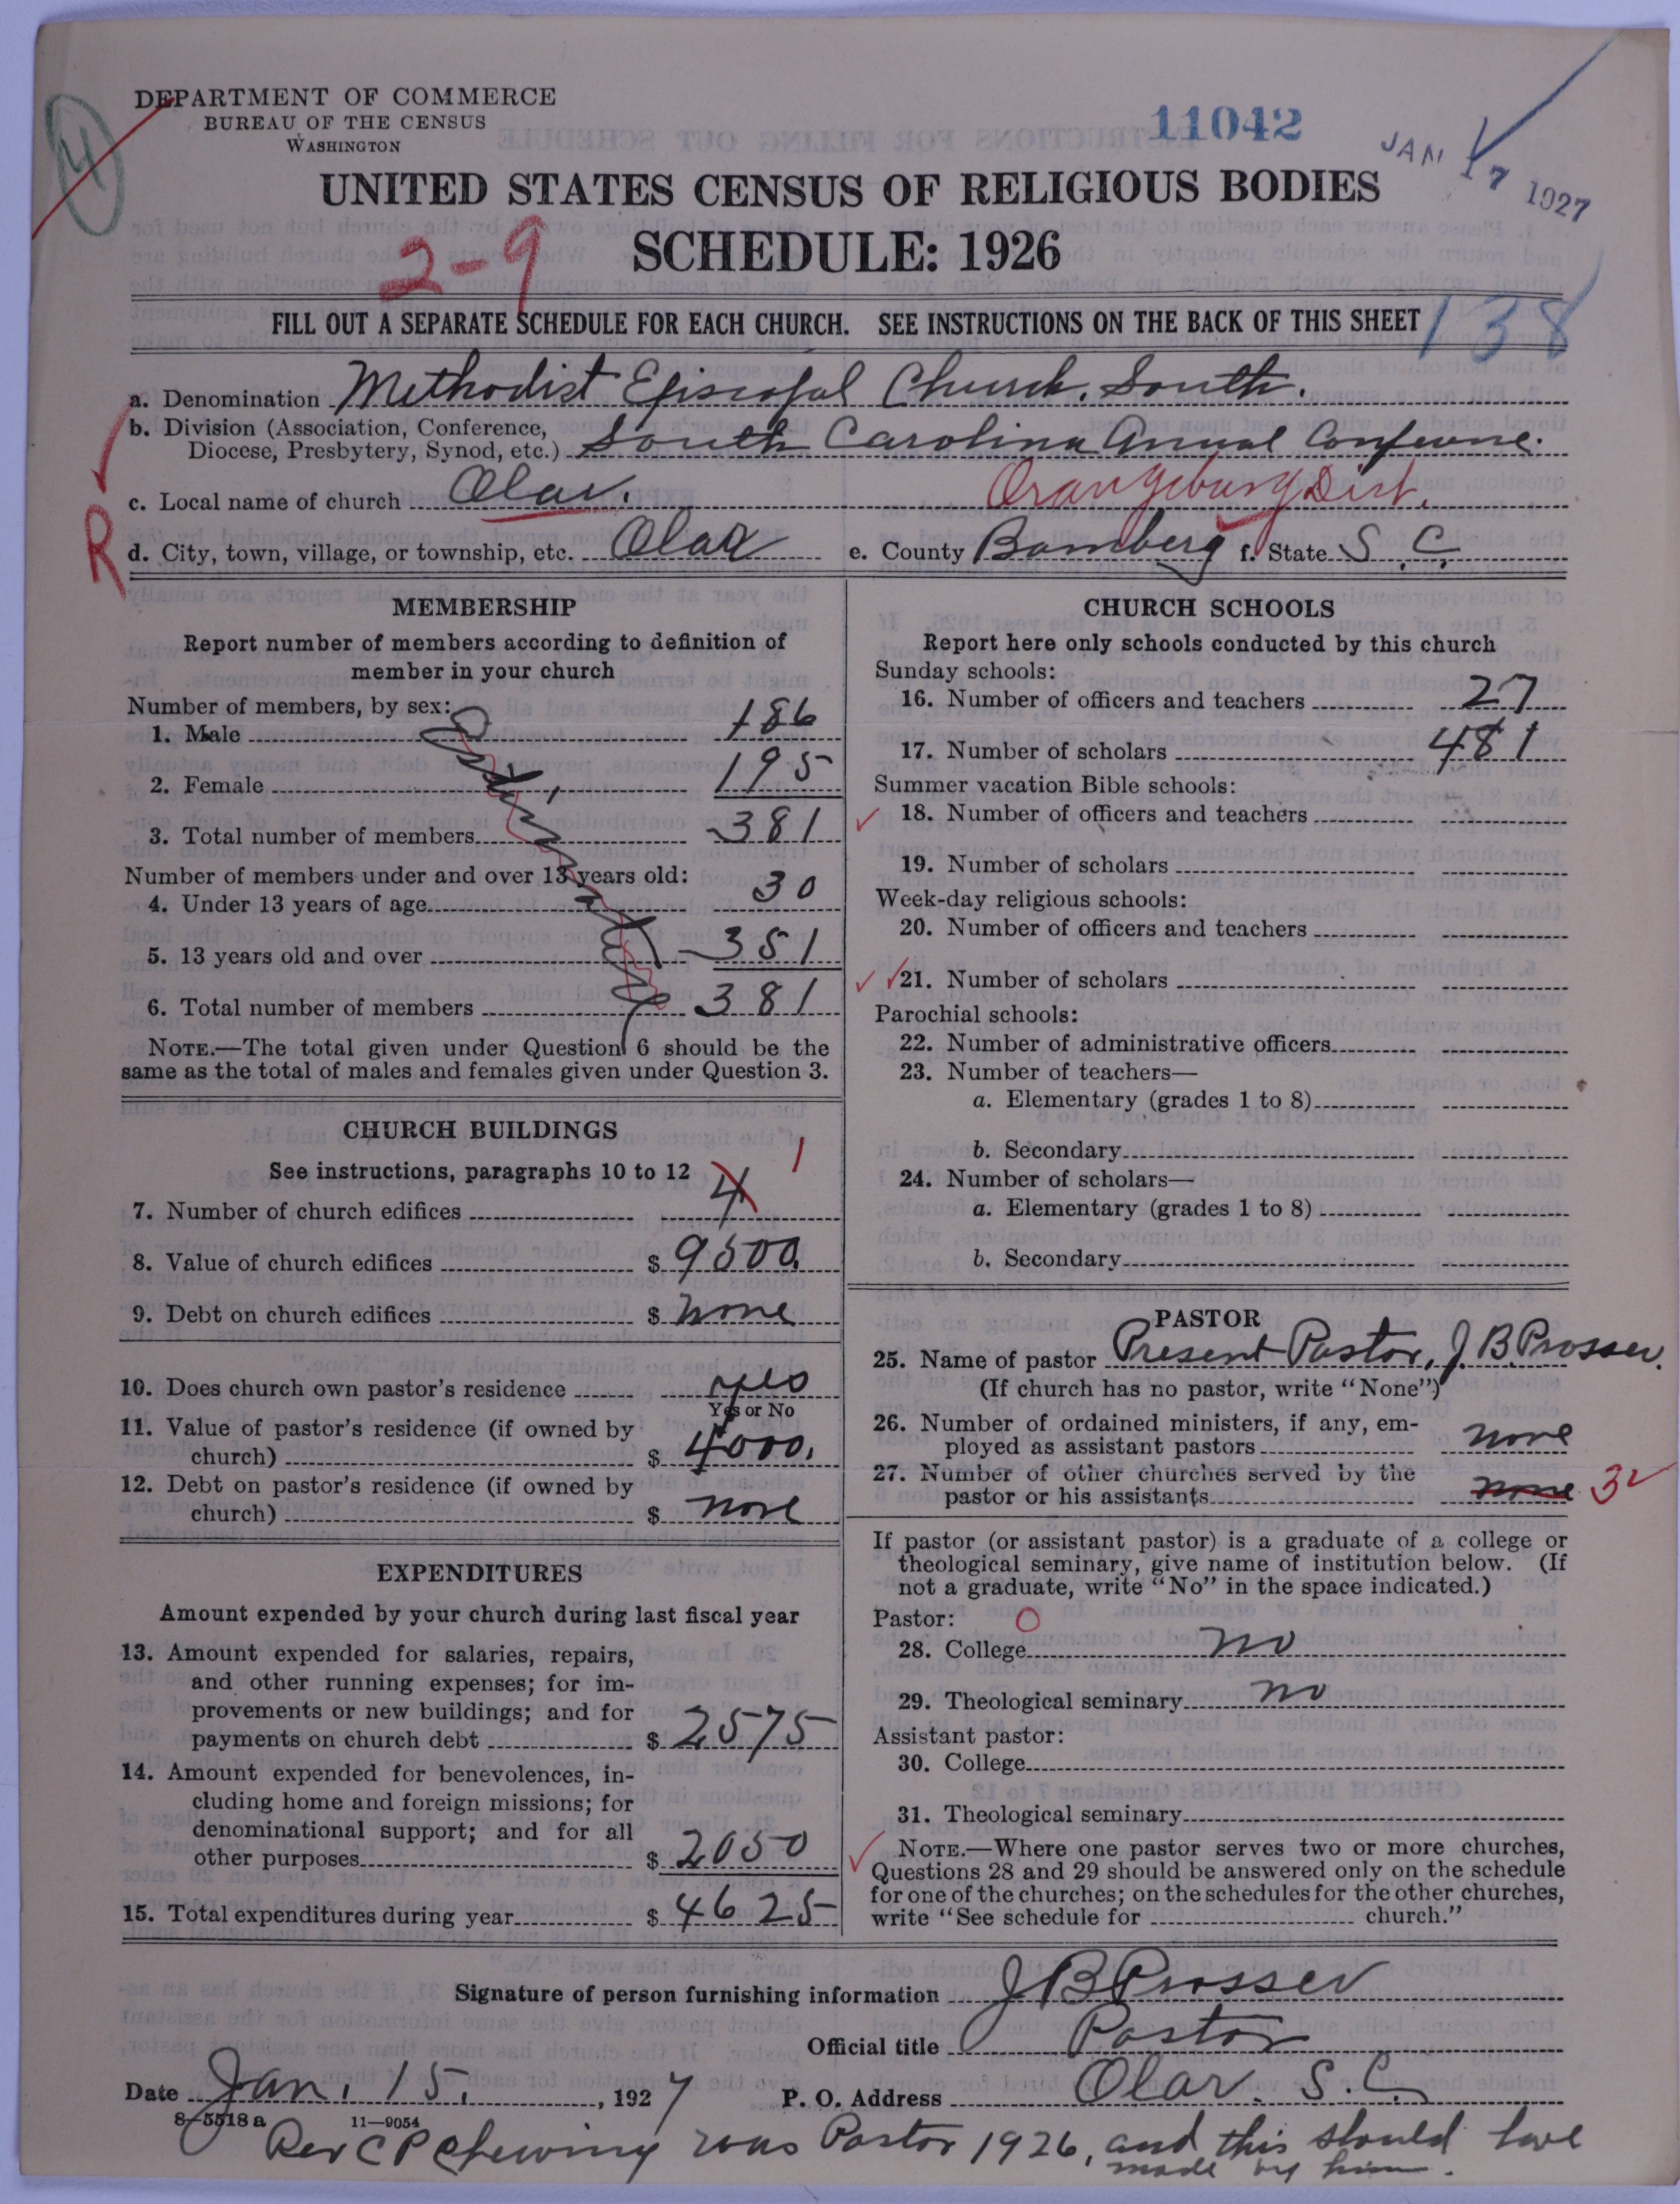 DEPARTMENT OF COMMERCE
BUREAU OF THE CENSUS
WASHINGTON
4
11042
JAN 17 1927
UNITED STATES CENSUS OF RELIGIOUS BODIES
SCHEDULE: 1926
2-9
138
FILL OUT A SEPARATE SCHEDULE FOR EACH CHURCH. SEE INSTRUCTIONS ON THE BACK OF THIS SHEET
a. Denomination Methodist Episcopal Church, South.
b. Division (Association, Conference, Diocese, Presbytery, Synod, etc.) South Carolina Annual Conference.
c. Local name of church Olar. Orangeburg Dist.
R
d. City, town, village, or township, etc. Olar e. County Bamberg f. State S. C.
MEMBERSHIP
Report number of members according to definition of
member in your church
Number of members, by sex:
1. Male 186
2. Female 195
3. Total number of members 381
Number of members under and over 13 years old:
4. Under 13 years of age 30
5. 13 years old and over 351
6. Total number of members 381
NOTE.—The total given under Question 6 should be the
same as the total of males and females given under Question 3.
CHURCH BUILDINGS
See instructions, paragraphs 10 to 12
7. Number of church edifices 4 1
8. Value of church edifices $ 9500.
9. Debt on church edifices $ none
10. Does church own pastor's residence yes
Yes or No
11. Value of pastor's residence (if owned by
church) $ 4000.
12. Debt on pastor's residence (if owned by
church) $ none
EXPENDITURES
Amount expended by your church during last fiscal year
13. Amount expended for salaries, repairs,
and other running expenses; for im-
provements or new buildings; and for
payments on church debt $ 2575
14. Amount expended for benevolences, in-
cluding home and foreign missions; for
denominational support; and for all
other purposes $ 2050
15. Total expenditures during year $ 4625
CHURCH SCHOOLS
Report here only schools conducted by this church
Sunday schools:
16. Number of officers and teachers 27
17. Number of scholars 481
Summer vacation Bible schools:
18. Number of officers and teachers
19. Number of scholars
Week-day religious schools:
20. Number of officers and teachers
21. Number of scholars
Parochial schools:
22. Number of administrative officers
23. Number of teachers—
a. Elementary (grades 1 to 8)
b. Secondary
24. Number of scholars—
a. Elementary (grades 1 to 8)
b. Secondary
PASTOR
25. Name of pastor Present Pastor, J. B. Prosser.
(If church has no pastor, write "None")
26. Number of ordained ministers, if any, em-
ployed as assistant pastors none
27. Number of other churches served by the
pastor or his assistants none 3
If pastor (or assistant pastor) is a graduate of a college or
theological seminary, give name of institution below. (If
not a graduate, write "No" in the space indicated.)
Pastor: O
28. College no
29. Theological seminary no
Assistant pastor:
30. College
31. Theological seminary
NOTE.—Where one pastor serves two or more churches,
Questions 28 and 29 should be answered only on the schedule
for one of the churches; on the schedules for the other churches,
write "See schedule for church."
Signature of person furnishing information J B Prosser
Official title Pastor
Date Jan. 15, 1927 P. O. Address Olar. S. C.
8-5518 a 11—9054
Rev C P Chewning was Pastor 1926, and this should have
made by him.